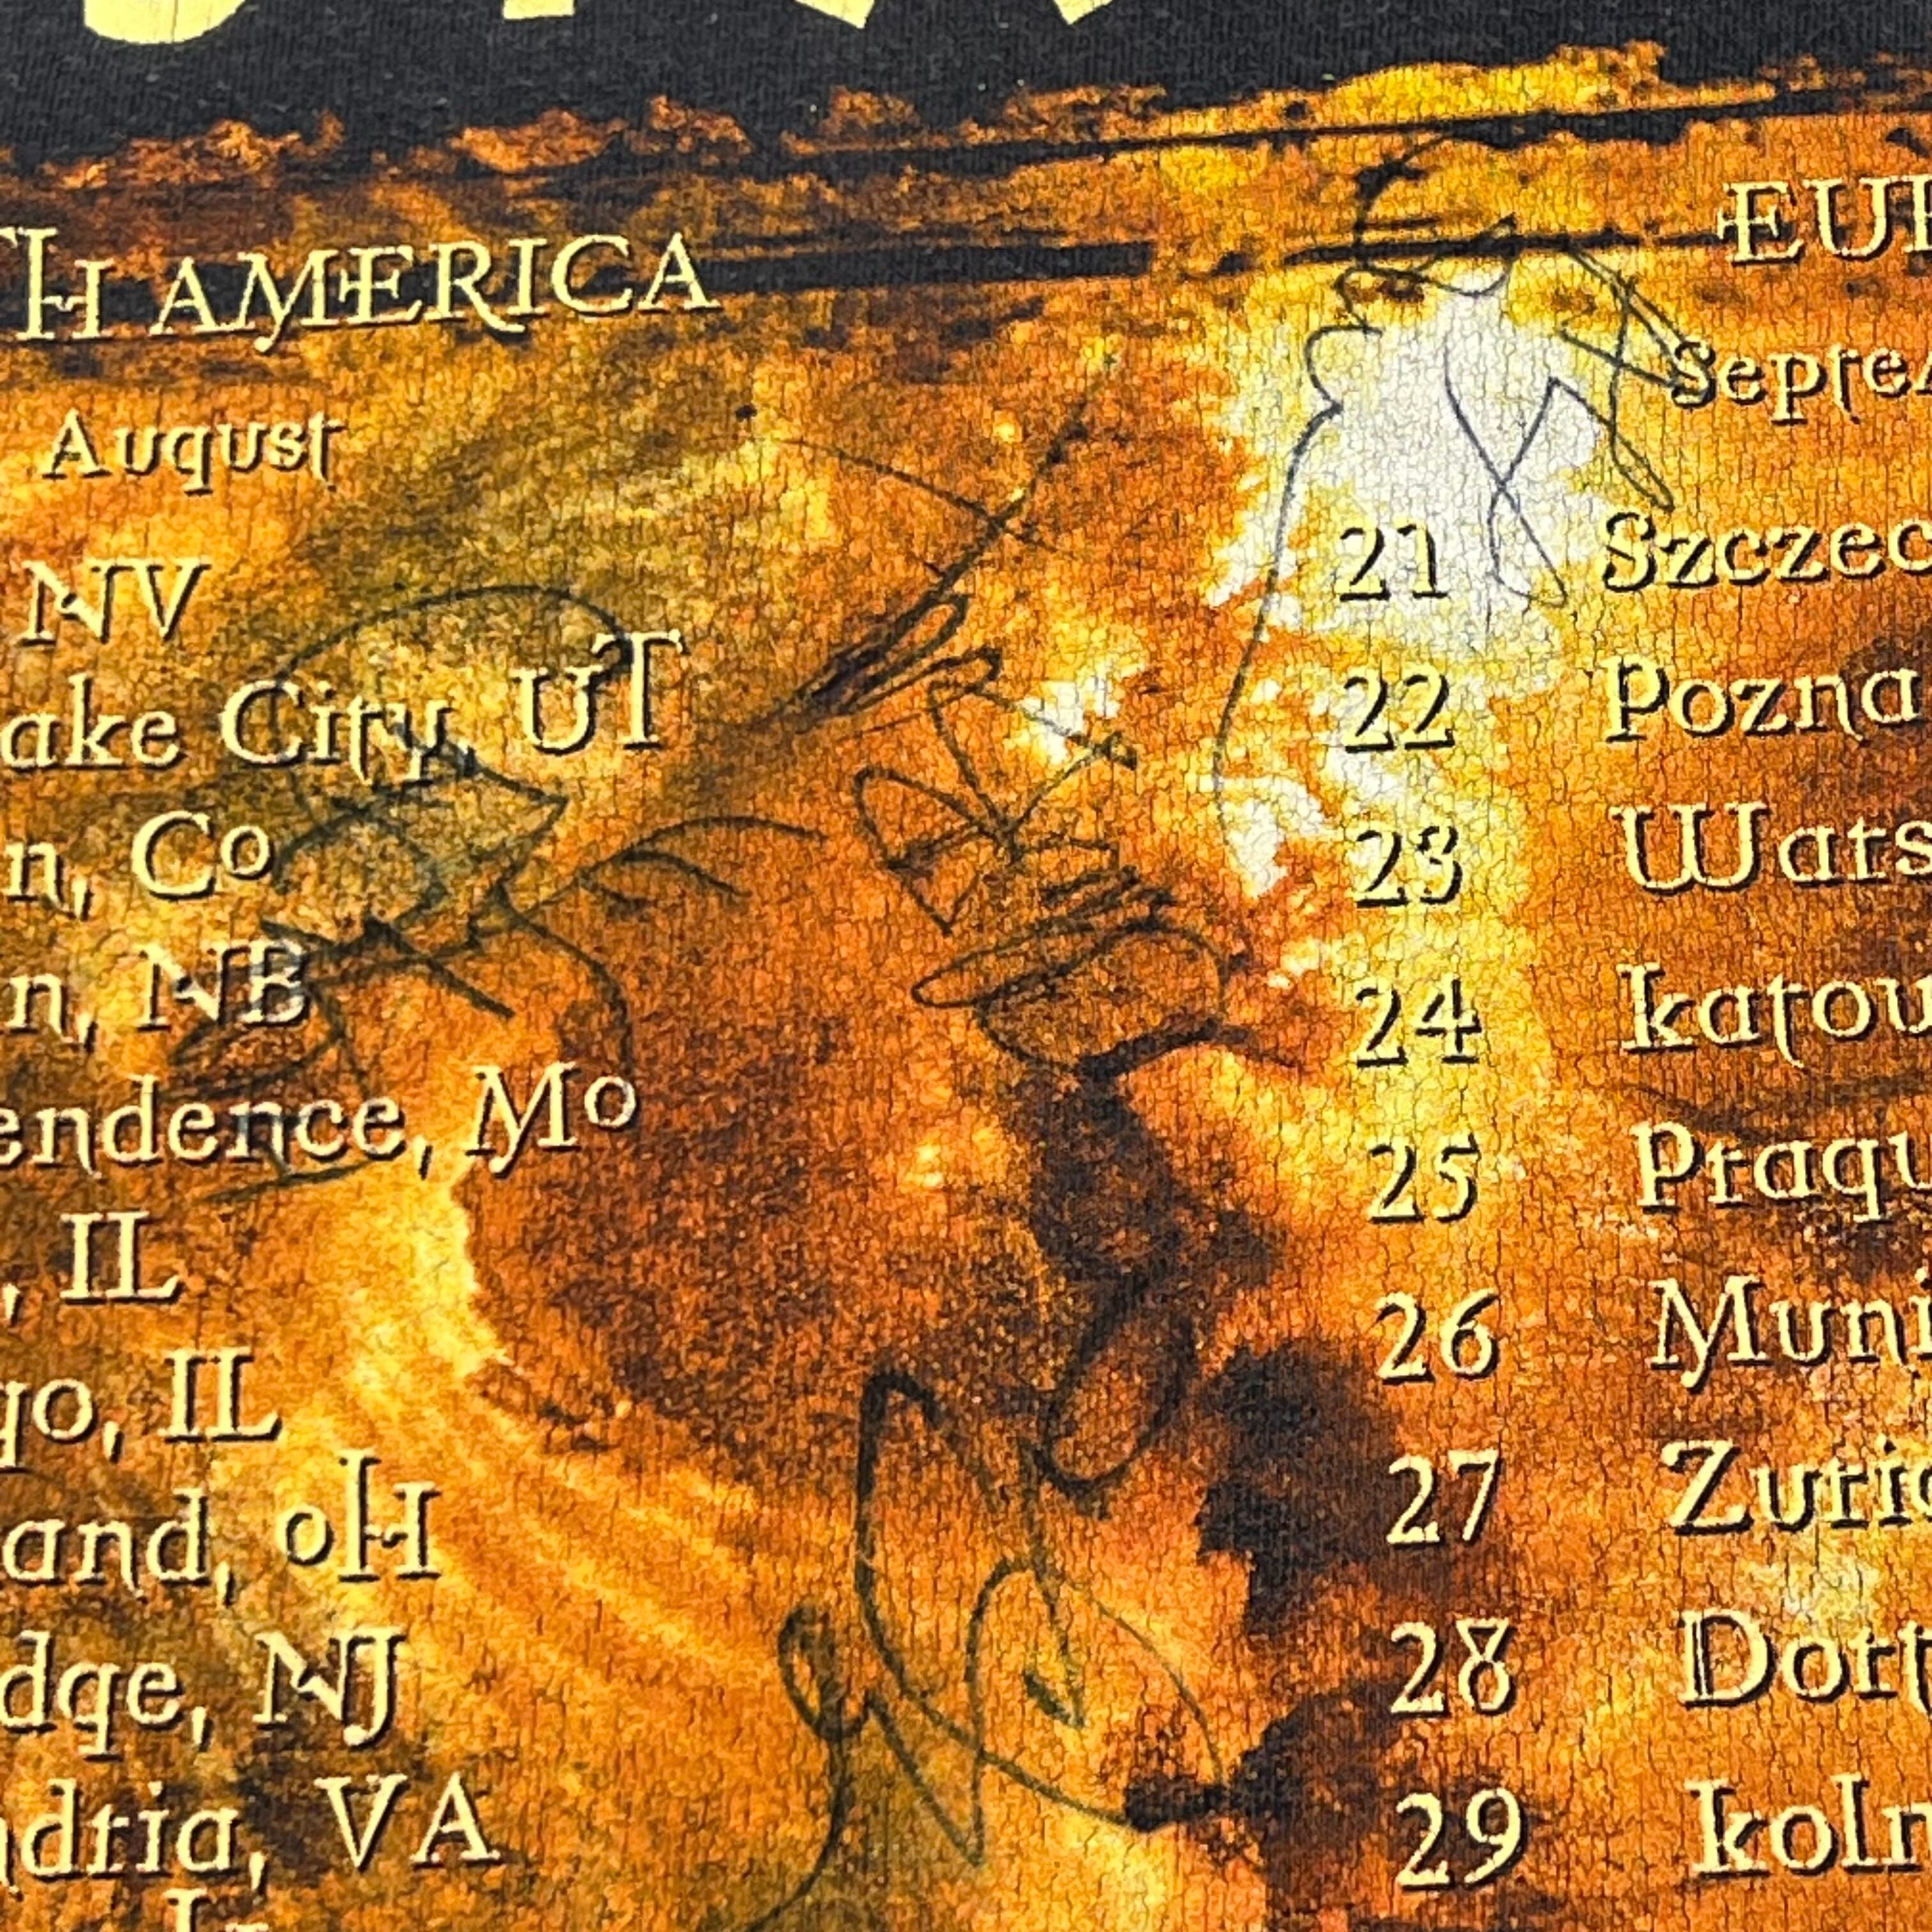 TH AMERICA
August
NV
ake City, UT
n, Co
n, NB
endence, Mo
, IL
go, IL
and, oH
dge, NJ
ndria, VA
EUR
Septe
21 Szczec
22 Pozna
23 Wars
24 katow
25 Pragu
26 Muni
27 Zuric
28 Dort
29 koln